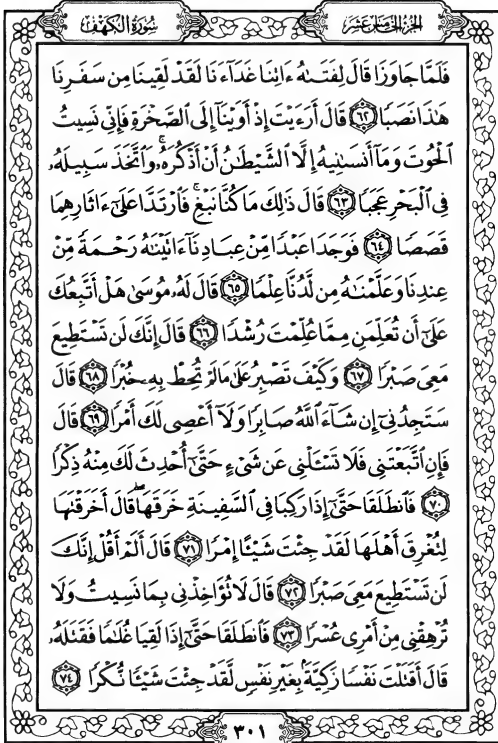 سورة الكهف
الجزء الخامس عشر
فَلَمَّا جَاوَزَا قَالَ لِفَتَىٰهُ ءَاتِنَا غَدَآءَنَا لَقَدْ لَقِينَا مِن سَفَرِنَا
هَٰذَا نَصَبًا ٦٢ قَالَ أَرَءَيْتَ إِذْ أَوَيْنَآ إِلَى ٱلصَّخْرَةِ فَإِنِّى نَسِيتُ
ٱلْحُوتَ وَمَآ أَنسَىٰنِيهُ إِلَّا ٱلشَّيْطَٰنُ أَنْ أَذْكُرَهُۥ ۚ وَٱتَّخَذَ سَبِيلَهُۥ
فِى ٱلْبَحْرِ عَجَبًا ٦٣ قَالَ ذَٰلِكَ مَا كُنَّا نَبْغِ ۚ فَٱرْتَدَّا عَلَىٰٓ ءَاثَارِهِمَا
قَصَصًا ٦٤ فَوَجَدَا عَبْدًا مِّنْ عِبَادِنَآ ءَاتَيْنَٰهُ رَحْمَةً مِّنْ
عِندِنَا وَعَلَّمْنَٰهُ مِن لَّدُنَّا عِلْمًا ٦٥ قَالَ لَهُۥ مُوسَىٰ هَلْ أَتَّبِعُكَ
عَلَىٰٓ أَن تُعَلِّمَنِ مِمَّا عُلِّمْتَ رُشْدًا ٦٦ قَالَ إِنَّكَ لَن تَسْتَطِيعَ
مَعِىَ صَبْرًا ٦٧ وَكَيْفَ تَصْبِرُ عَلَىٰ مَا لَمْ تُحِطْ بِهِۦ خُبْرًا ٦٨ قَالَ
سَتَجِدُنِىٓ إِن شَآءَ ٱللَّهُ صَابِرًا وَلَآ أَعْصِى لَكَ أَمْرًا ٦٩ قَالَ
فَإِنِ ٱتَّبَعْتَنِى فَلَا تَسْـَٔلْنِى عَن شَىْءٍ حَتَّىٰٓ أُحْدِثَ لَكَ مِنْهُ ذِكْرًا
٧٠ فَٱنطَلَقَا حَتَّىٰٓ إِذَا رَكِبَا فِى ٱلسَّفِينَةِ خَرَقَهَا ۖ قَالَ أَخَرَقْتَهَا
لِتُغْرِقَ أَهْلَهَا لَقَدْ جِئْتَ شَيْـًٔا إِمْرًا ٧١ قَالَ أَلَمْ أَقُلْ إِنَّكَ
لَن تَسْتَطِيعَ مَعِىَ صَبْرًا ٧٢ قَالَ لَا تُؤَاخِذْنِى بِمَا نَسِيتُ وَلَا
تُرْهِقْنِى مِنْ أَمْرِى عُسْرًا ٧٣ فَٱنطَلَقَا حَتَّىٰٓ إِذَا لَقِيَا غُلَٰمًا فَقَتَلَهُۥ
قَالَ أَقَتَلْتَ نَفْسًا زَكِيَّةًۢ بِغَيْرِ نَفْسٍ لَّقَدْ جِئْتَ شَيْـًٔا نُّكْرًا ٧٤
٣٠١